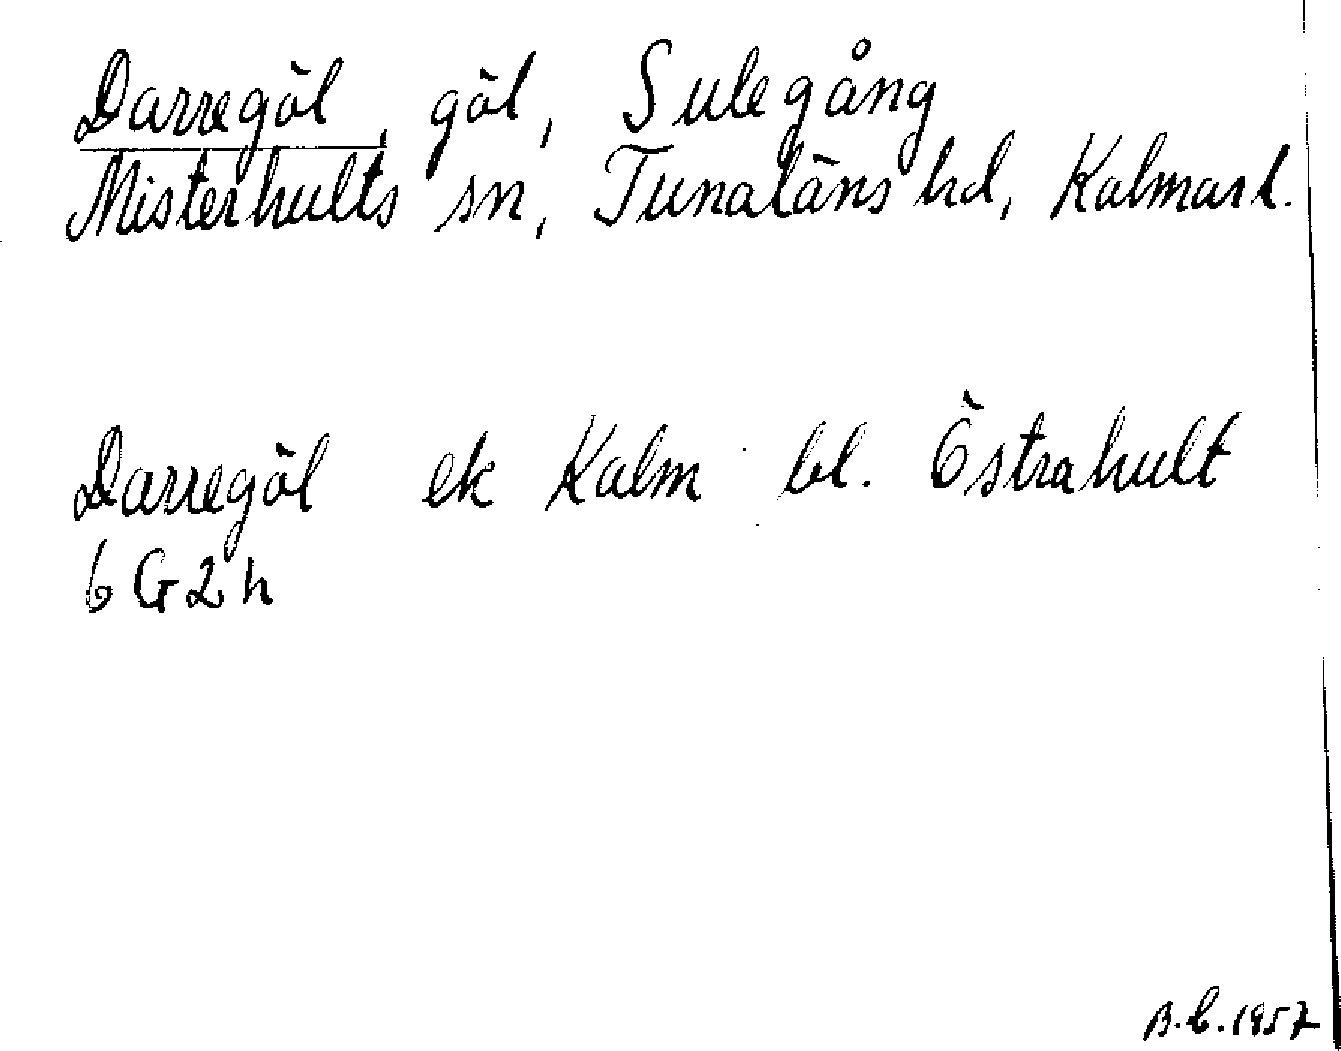 Darregöl, göl, Sulegång
Misterhults sn, Tunaläns hd, Kalmar l.
Darregöl ek Kalm bl. Östrahult
6 G 2 h
B.C. 1957